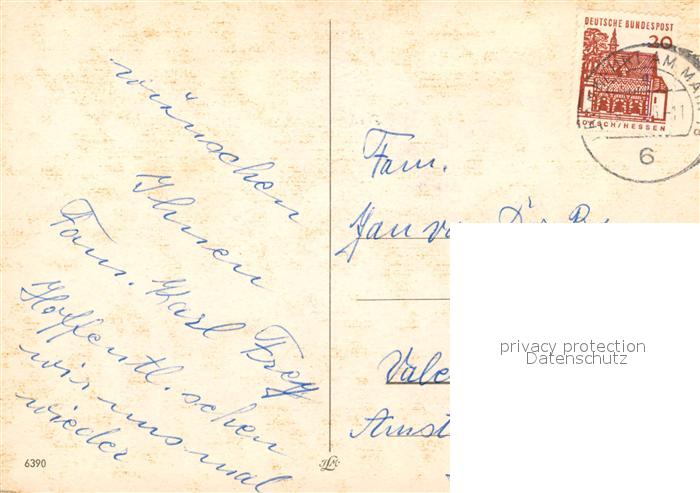 wünschen
Ihnen
Fam. Karl Frey
Hoffentl. sehen
wir uns mal
wieder
6390
DEUTSCHE BUNDESPOST
20
LORSCH/HESSEN
AM MAIN
6
Fam.
Jan
privacy protection
Datenschutz